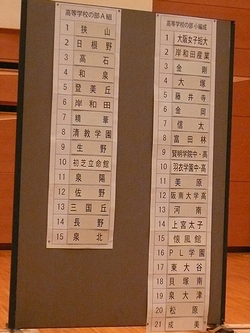 高等学校の部A組
1 狭山
2 日根野
3 高石
4 和泉
5 登美丘
6 岸和田
7 精華
8 清教学園
9 生野
10 初芝立命館
11 泉陽
12 佐野
13 三国丘
14 長野
15 泉北
高等学校の部小編成
1 大阪女子短大
2 岸和田産業
3 金剛
4 大塚
5 藤井寺
6 金岡
7 信太
8 富田林
9 賢明学院中・高
10 羽衣学園中・高
11 美原
12 阪南大学高
13 河南
14 上宮太子
15 懐風館
16 PL学園
17 東大谷
18 貝塚南
19 泉大津
20 松原
21 成美